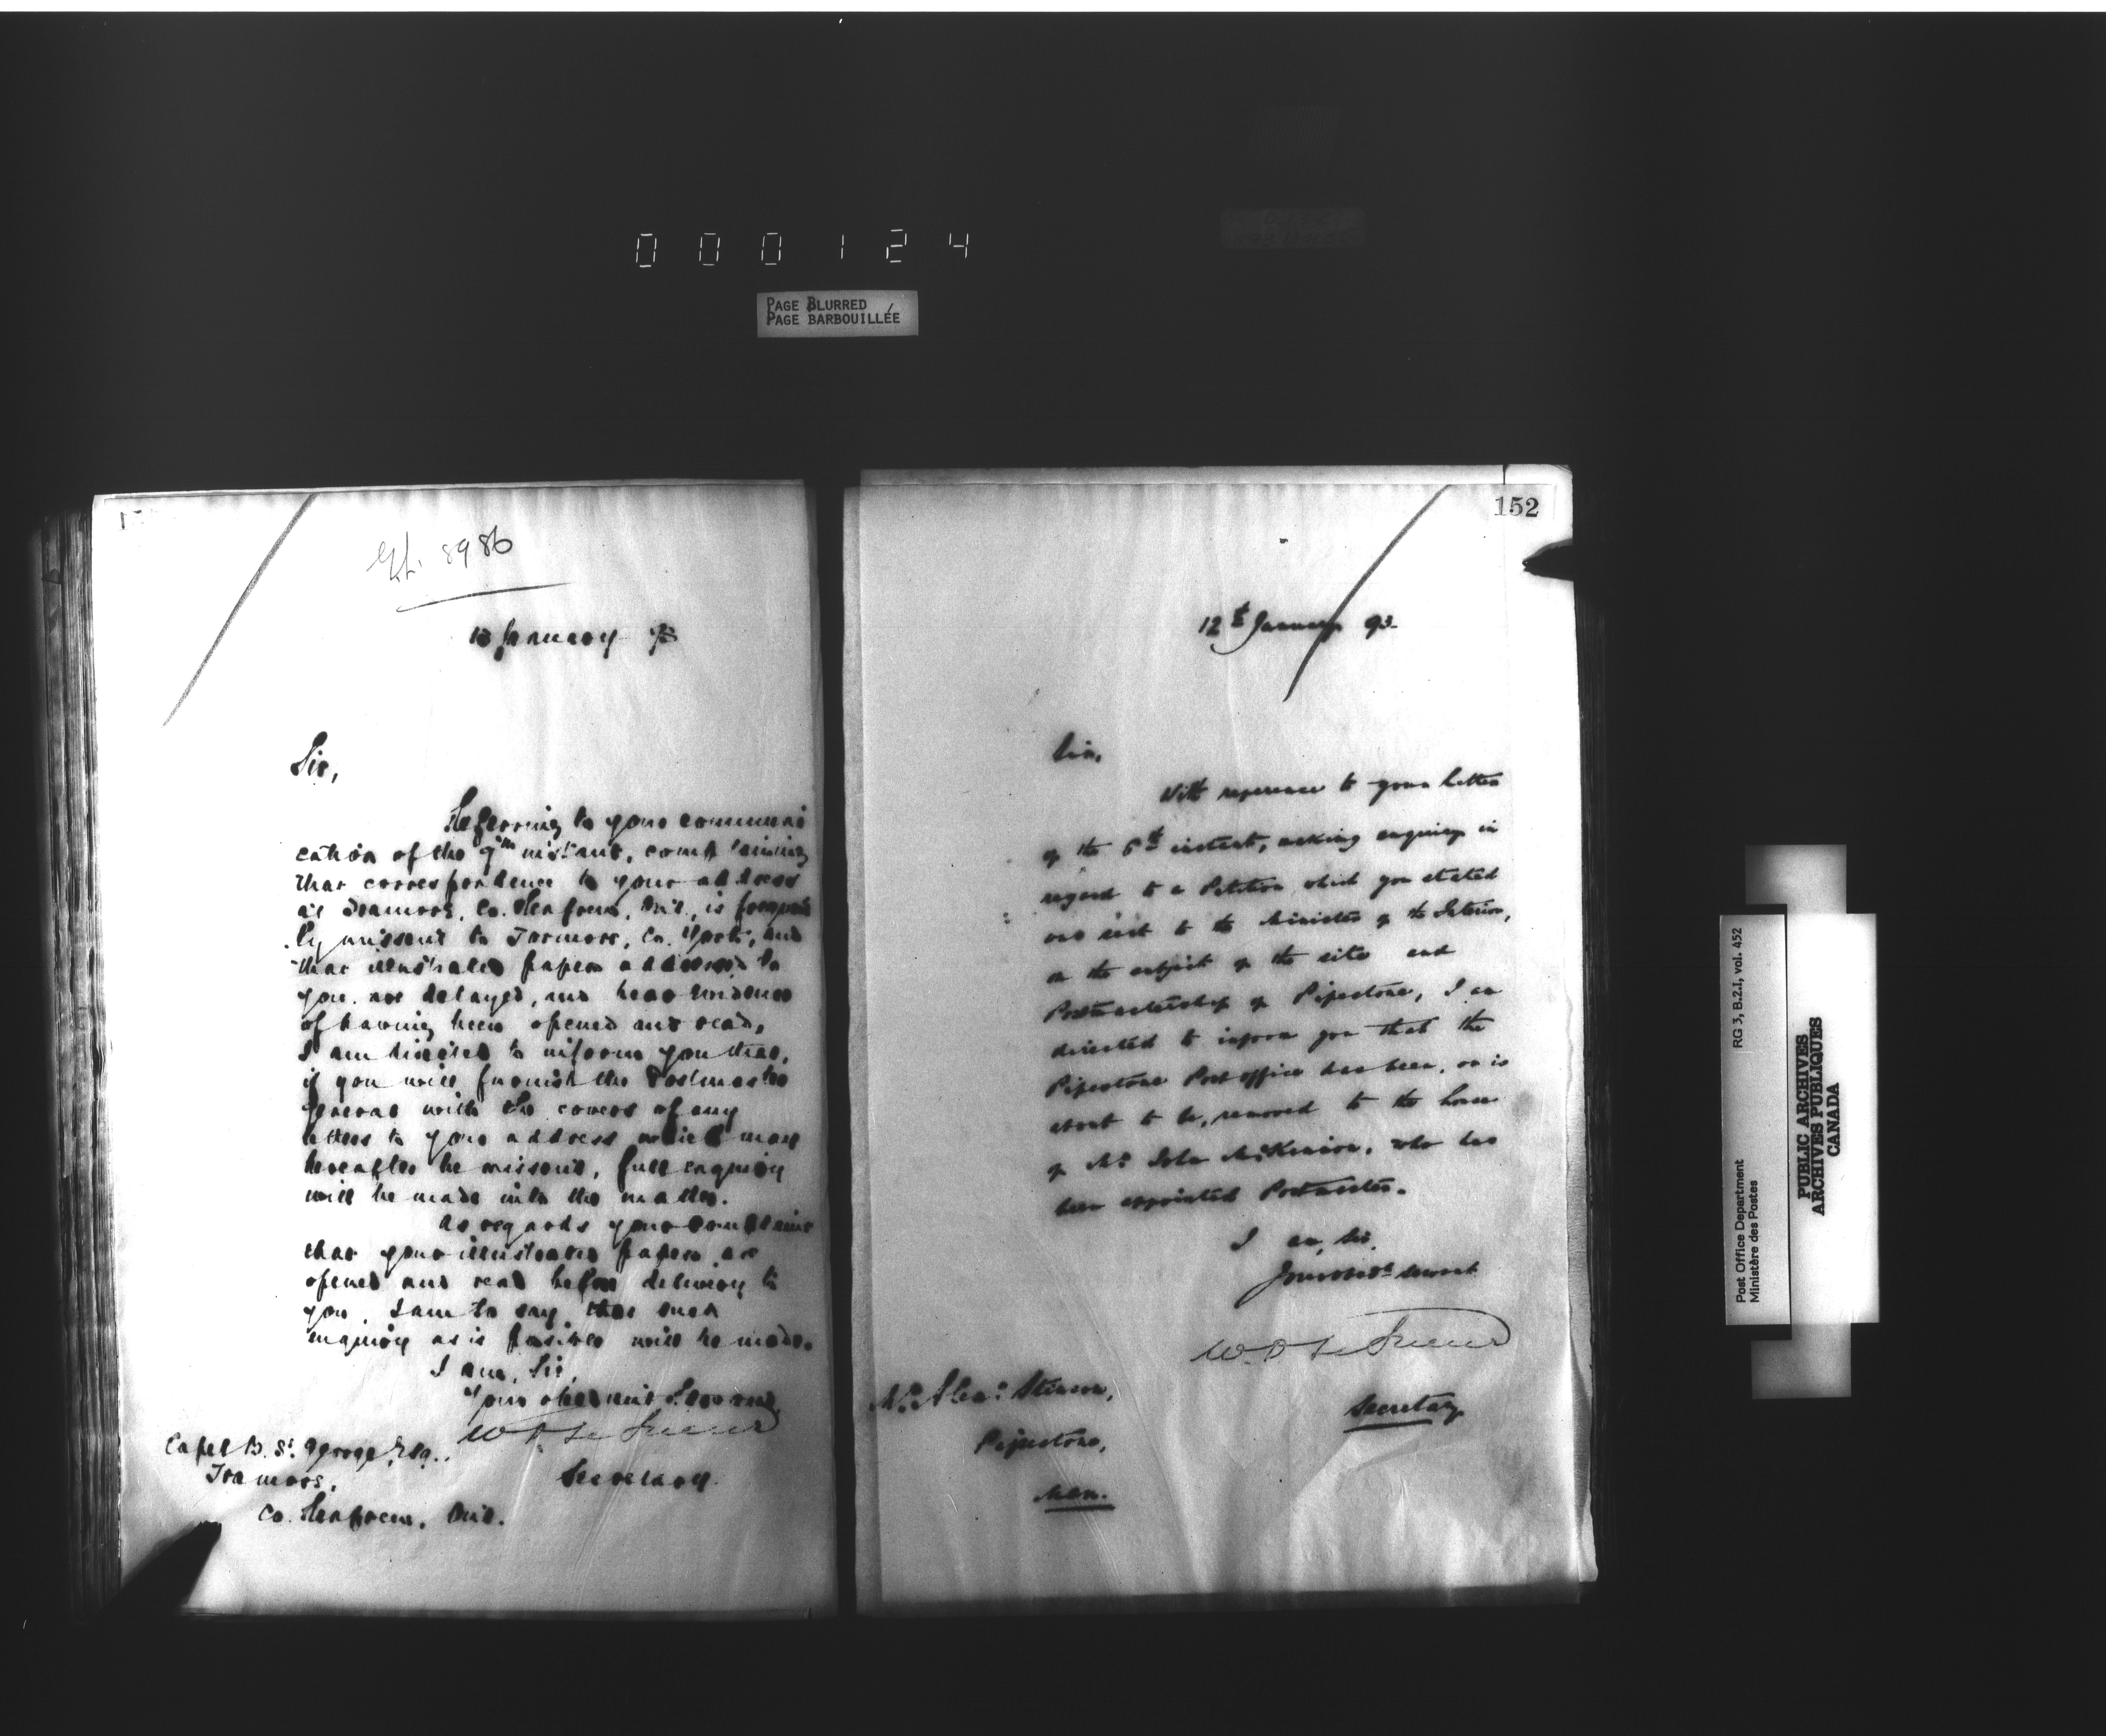 000124
PAGE BLURRED
PAGE BARBOUILLÉE
8986
January 93
Sir,
Referring to your communi
cation of the 9th instant, complaining
that correspondence to your address
at Tramore, Co. Renfrew, Ont., is frequent
ly missent to Tormore, Co. York, and
that illustrated papers addressed to
you are delayed, and bear evidence
of having been opened and read,
I am directed to inform you that,
if you will furnish the Postmaster
General with the covers of any
letters to your address which may
hereafter be missent, full enquiry
will be made into the matter.
As regards your complaint
that your illustrated papers are
opened and read before delivery to
you, I am to say that such
inquiry as is possible will be made.
I am, Sir,
Your obedient Servant,
W D LeSueur
Secretary.
Capel B. St. George, Esq.,
Tramore,
Co. Renfrew, Ont.
152
12th January 93.
Sir,
With reference to your letter
of the 6th instant, making enquiry in
regard to a Petition which you stated
was sent to the Minister of the Interior,
on the subject of the site and
Postmastership of Pipestone, I am
directed to inform you that the
Pipestone Post office has been, or is
about to be, removed to the house
of Mr John McKinnon, who has
been appointed Postmaster.
I am, Sir,
Your obedt. servant
W. D LeSueur
Secretary
Mr. Alexr. Stinson,
Pipestone,
Man.
RG 3, B.2.I, vol. 452
Post Office Department
Ministère des Postes
PUBLIC ARCHIVES
ARCHIVES PUBLIQUES
CANADA